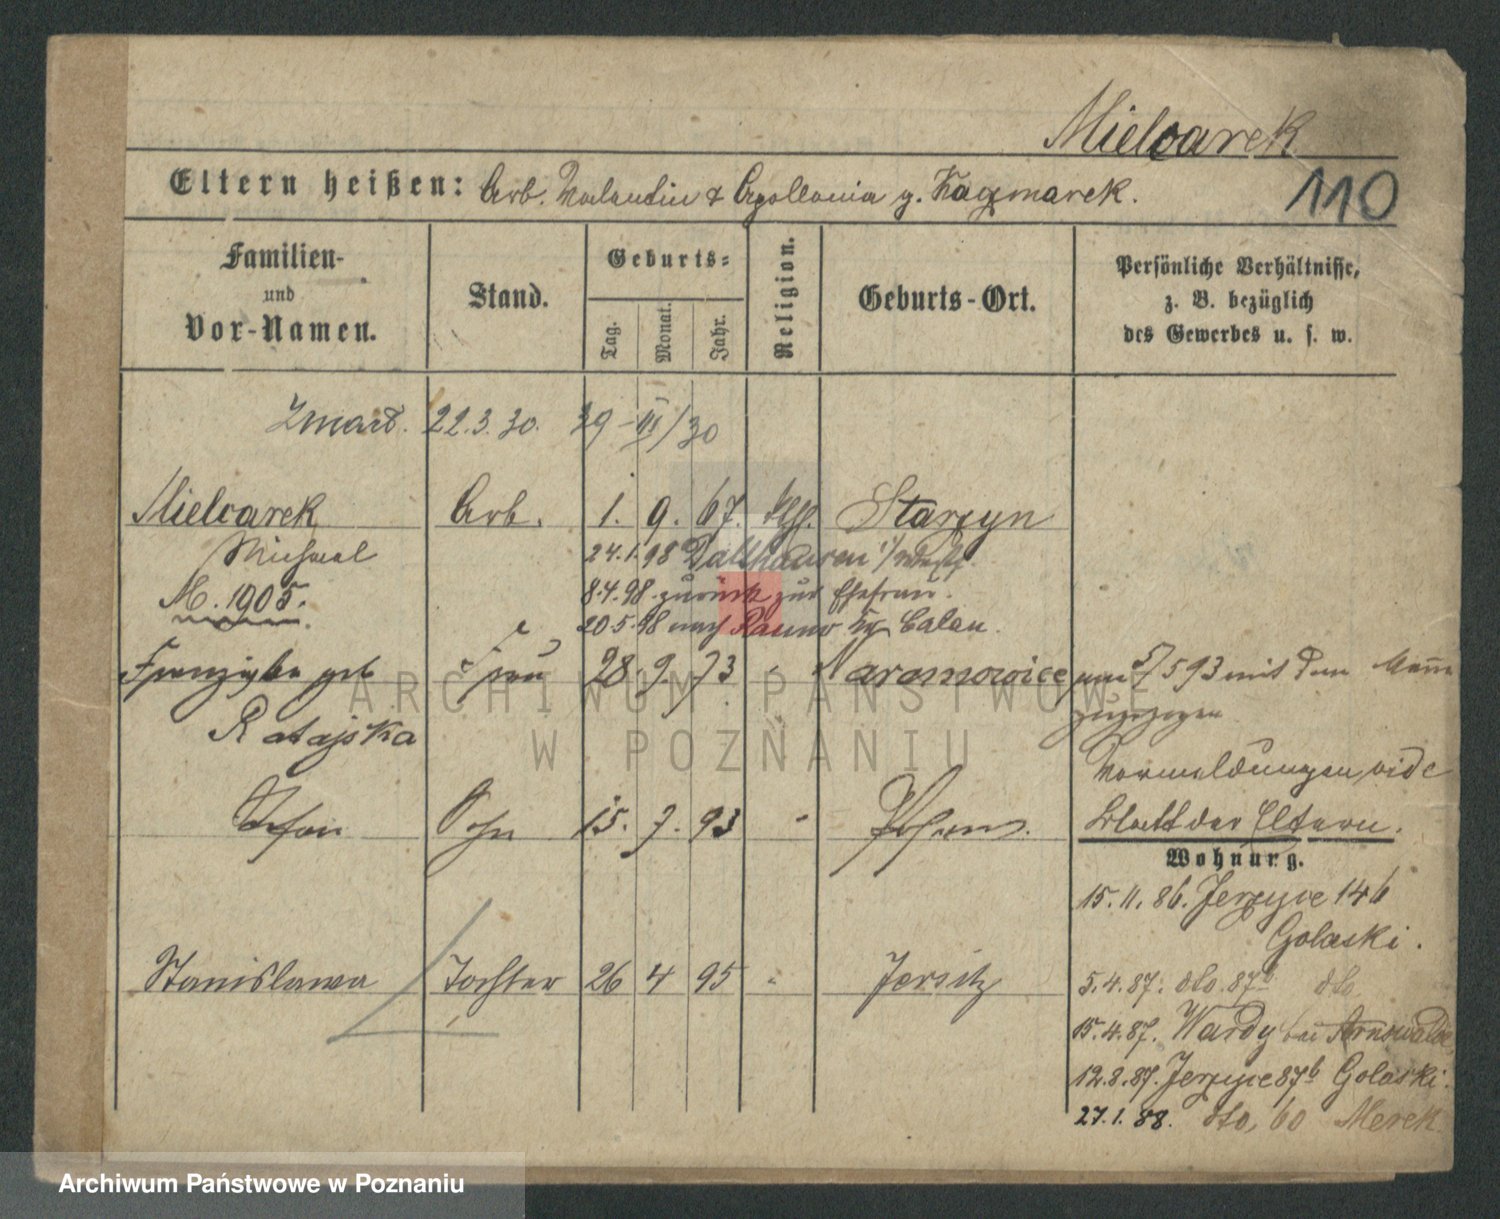 Mielcarek
110
Eltern heißen: Arb. Valentin & Apollonia g. Kaczmarek.
Familien- und Vor-Namen.
Stand.
Geburts=
Tag.
Monat.
Jahr.
Religion.
Geburts-Ort.
Persönliche Verhältnisse,
z. B. bezüglich
des Gewerbes u. s. w.
Zmarł. 22.3.30. 29-III/30
Mielcarek Arb. 1. 9. 67. kath. Starzyn
Michael
24.1.98 i/Westf.
M. 1905.
8.4.98 zurück zur Ehefrau.
20.5.98 nach Rauno Kr Calau.
Franziska geb Frau 28. 9. 73 " Naramowice 593 mit dem Mann
Ratajska
zugezogen
Vormeldungen vide
Stefan Sohn 15. 7. 93 " Posen.
Blatt der Eltern.
Wohnung.
15.11.86. Jerzyce 146
Golaski.
Stanislawa Tochter 26 4 95 " Jersitz
5.4.87. dto. 87b dto.
15.4.87. Wardy bei Arnswalde
12.8.87. Jerzyce 87b Golaski.
27.1.88. dto, 60 Merek
ARCHIWUM PAŃSTWOWE
W POZNANIU
Archiwum Państwowe w Poznaniu